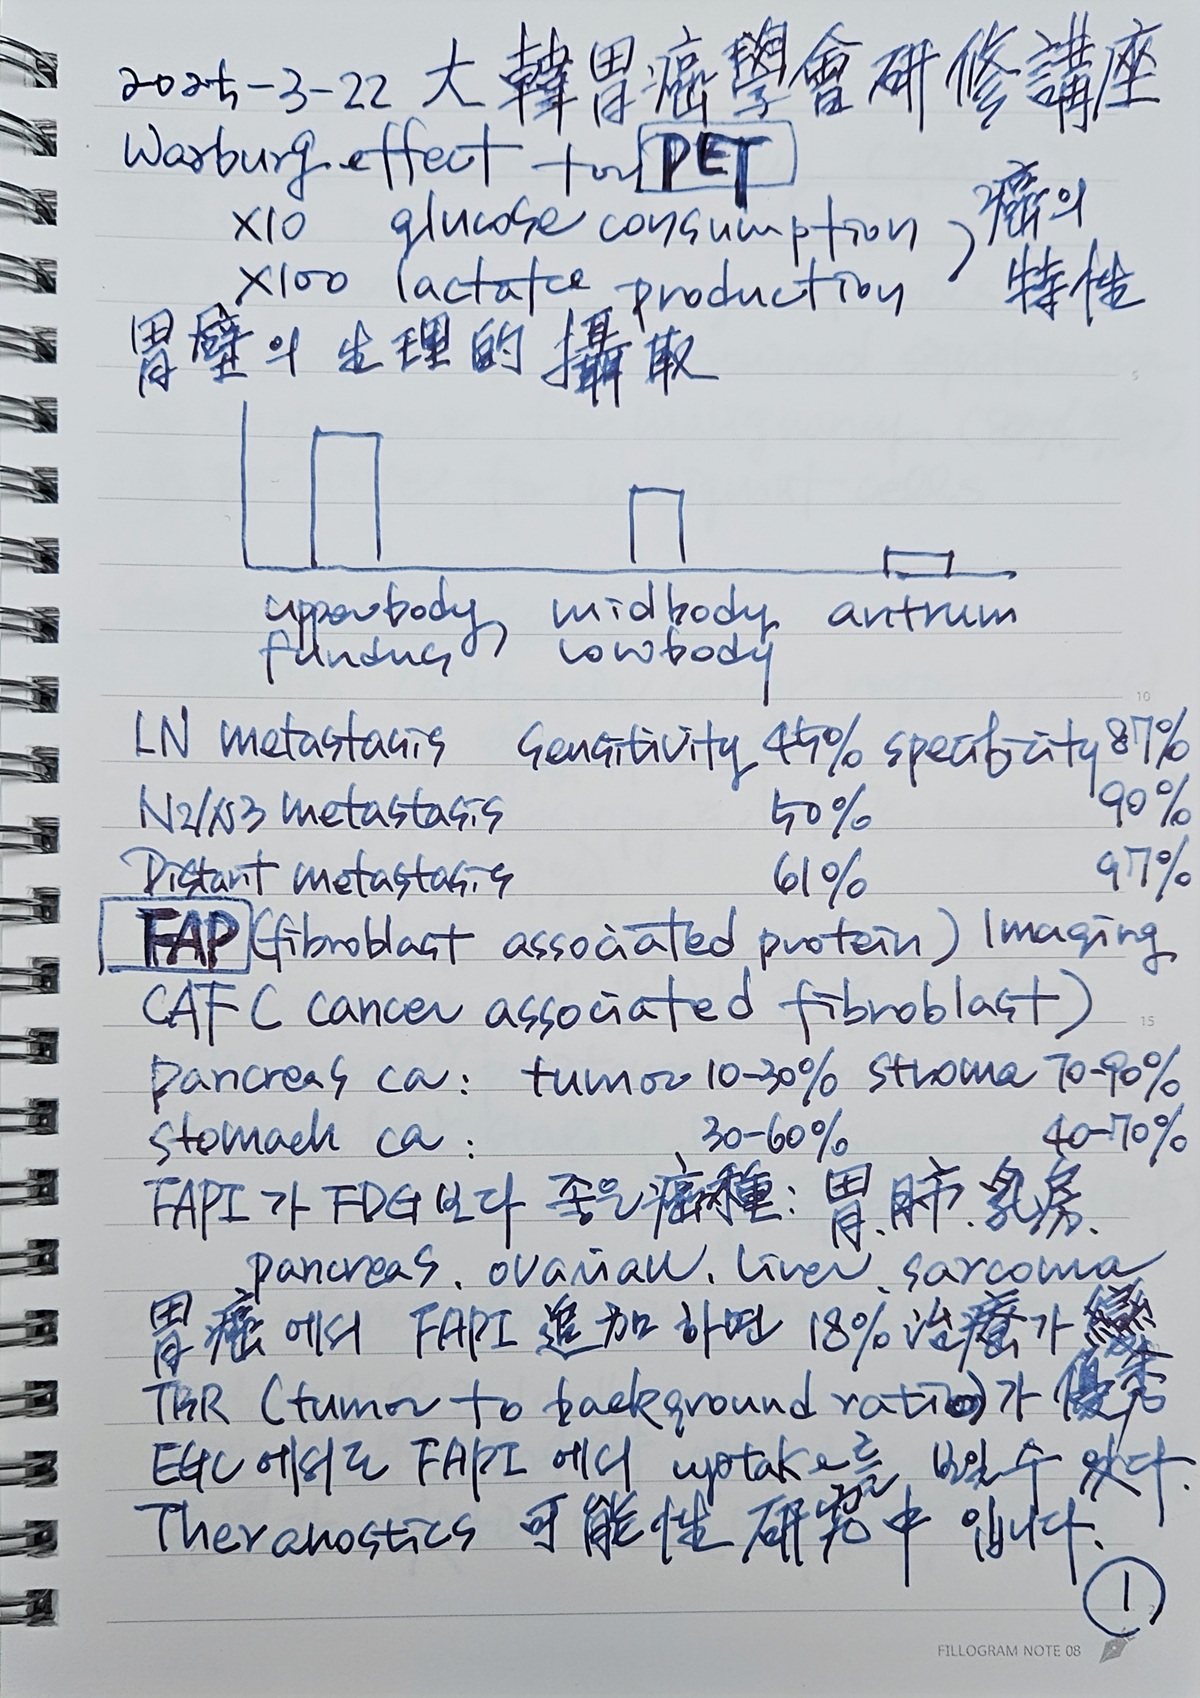 2025-3-22 大韓胃癌學會研修講座
Warburg effect for PET
x10 glucose consumption, 癌의
x100 lactate production 特性
胃壁의 生理的 攝取
upperbody, midbody antrum
fundus lowbody
LN metastasis sensitivity 45% specificity 87%
N2/N3 metastasis 50% 90%
Distant metastasis 61% 97%
FAP (fibroblast associated protein) Imaging
CAF (cancer associated fibroblast)
pancreas ca: tumor 10-30% stroma 70-90%
stomach ca: 30-60% 40-70%
FAPI가 FDG보다 좋은 癌種: 胃.肺.乳房.
pancreas. ovarian. liver. sarcoma
胃癌에서 FAPI 追加하면 18% 治療가 變
TBR (tumor to background ratio)가 優秀
EGC에서도 FAPI에서 uptake를 보일 수 있다.
Theranostics 可能性 研究中입니다.
1
5
10
15
FILLOGRAM NOTE 08